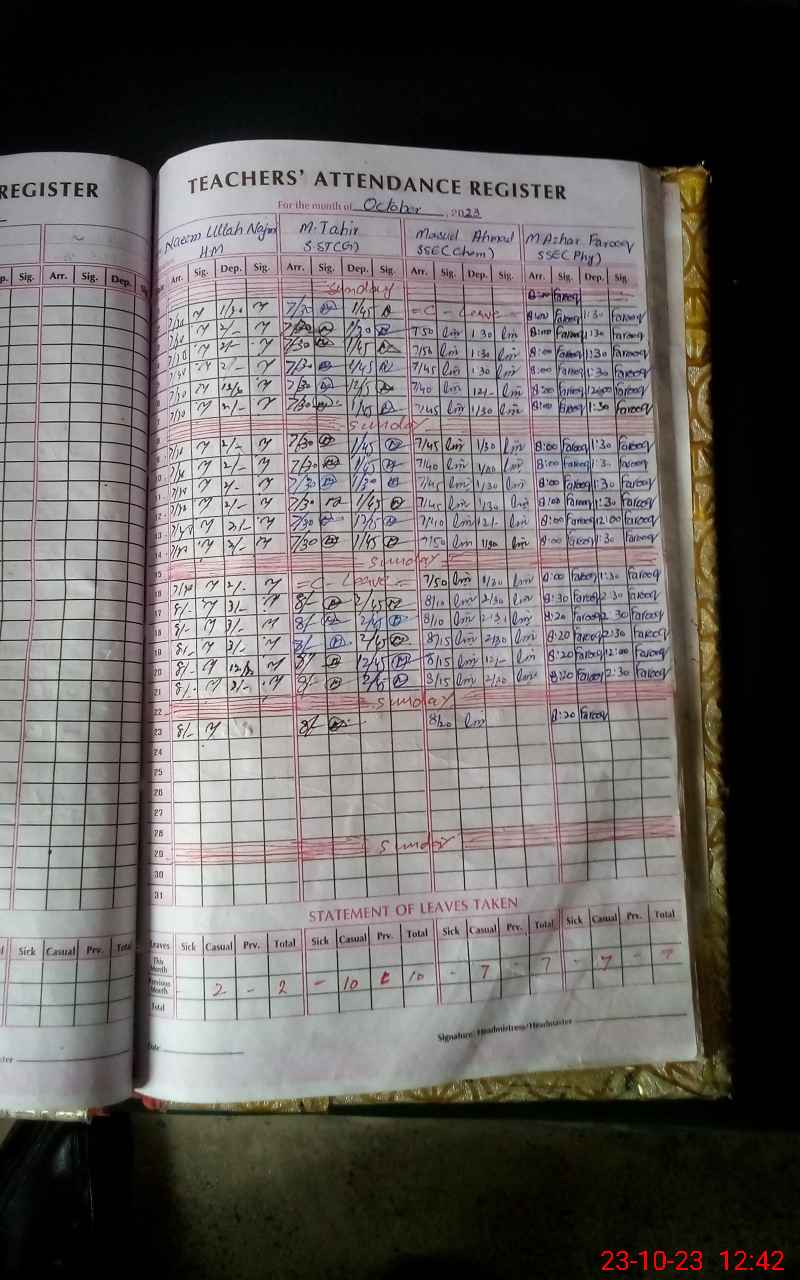 REGISTER
TEACHERS' ATTENDANCE REGISTER
For the month of October, 2023
Naeem Ullah Najmi M. Tahir Masud Ahmad M Azhar Farooq
HM S.ST(G) SSE(Chem) SSE(Phy)
Sig. Arr. Sig. Dep. Arr. Sig. Dep. Sig. Arr. Sig. Dep. Sig. Arr. Sig. Dep. Sig. Arr. Sig. Dep. Sig.
Sunday 8:00 Farooq
7/30 1/30 7/30 1/45 = C - Leave = 8:00 Farooq 1:30 Farooq
7/30 2/- 7/30 1/30 7/50 lm 1:30 lm 8:00 Farooq 1:30 Farooq
7/30 2/- 7/30 1/45 7/50 lm 1:30 lm 8:00 Farooq 1:30 Farooq
7/30 2/- 7/30 1/45 7/45 lm 1:30 lm 8:00 Farooq 1:30 Farooq
7/30 7/30 12/5 7/40 lm 12/- lm 8:00 Farooq 12:00 Farooq
7/30 2/- 7/30 1/45 7/45 lm 1/30 lm 8:00 Farooq 1:30 Farooq
Sunday
2/- 7/30 1/45 7/45 lm 1/30 lm 8:00 Farooq 1:30 Farooq
10 2/- 7/30 1/45 7/40 lm lm 8:00 Farooq 1:30 Farooq
11 2/- 7/30 1/30 7/45 lm 1/30 lm 8:00 Farooq 1:30 Farooq
12 2/- 7/30 1/45 7/45 lm 1/30 lm 8:00 Farooq 1:30 Farooq
13 7/30 12/5 7/40 lm 12/- lm 8:00 Farooq 12:00 Farooq
14 2/- 7/30 1/45 7/50 lm 1/30 lm 8:00 Farooq 1:30 Farooq
15 Sunday
16 7/30 2/- = C - Leave = 7/50 lm 1/30 lm 8:00 Farooq 1:30 Farooq
17 8/- 3/- 8/- 2/45 8/10 lm 2/30 lm 8:30 Farooq 2:30 Farooq
18 8/- 3/- 8/- 2/45 8/10 lm 2/30 lm 8:20 Farooq 2:30 Farooq
19 8/- 3/- 8/- 2/45 8/15 lm 2/30 lm 8:20 Farooq 2:30 Farooq
20 8/- 8/- 12/45 8/15 lm 12/- lm 8:20 Farooq 12:00 Farooq
21 8/- 3/- 8/- 8/15 lm 2/30 lm 8:20 Farooq 2:30 Farooq
22 Sunday
23 8/- 8/- 8/20 lm 8:20 Farooq
24
25
26
27
28
29 Sunday
30
31
STATEMENT OF LEAVES TAKEN
Sick Casual Prv. Total Leaves Sick Casual Prv. Total Sick Casual Prv. Total Sick Casual Prv. Total Sick Casual Prv. Total
This Month
Previous Month 2 - 2 - 10 10 - 7 - 7 - 7 - 7
Total
Date
Signature: Headmistress/Headmaster
23-10-23 12:42